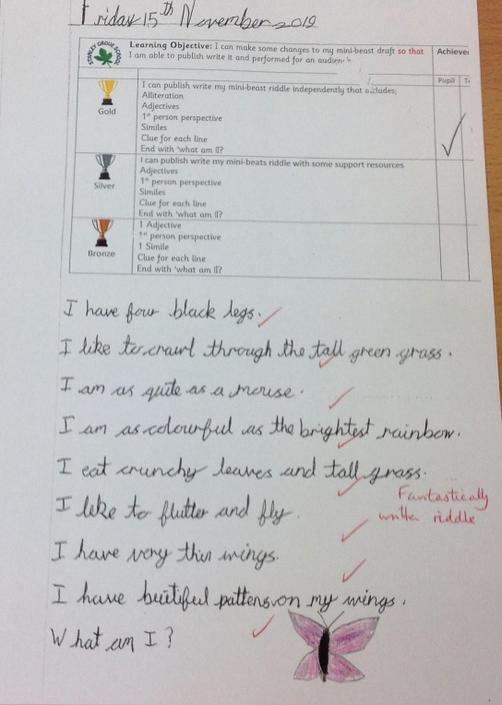 Friday 15th November 2019
STANLEY GROVE SCHOOL
Learning Objective: I can make some changes to my mini-beast draft so that
I am able to publish write it and performed for an audien
Achieve
Pupil
Gold
I can publish write my mini-beast riddle independently that includes;
Alliteration
Adjectives
1st person perspective
Similes
Clue for each line
End with 'what am I?
Silver
I can publish write my mini-beats riddle with some support resources
Adjectives
1st person perspective
Similes
Clue for each line
End with 'what am I?
Bronze
1 Adjective
1st person perspective
1 Simile
Clue for each line
End with 'what am I?
I have four black legs.
I like to crawl through the tall green grass.
I am as quite as a mouse.
I am as colourful as the brightest rainbow.
I eat crunchy leaves and tall grass.
Fantastically
written riddle
I like to flutter and fly.
I have very thin wings.
I have beutiful pattens on my wings.
What am I?